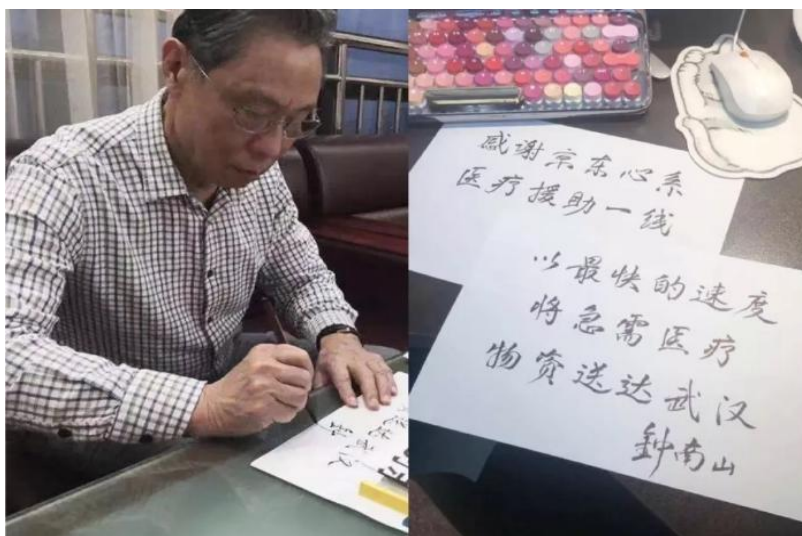 感谢京东心系
医疗援助一线
以最快的速度
将急需医疗
物资送达武汉
鈡南山
武汉